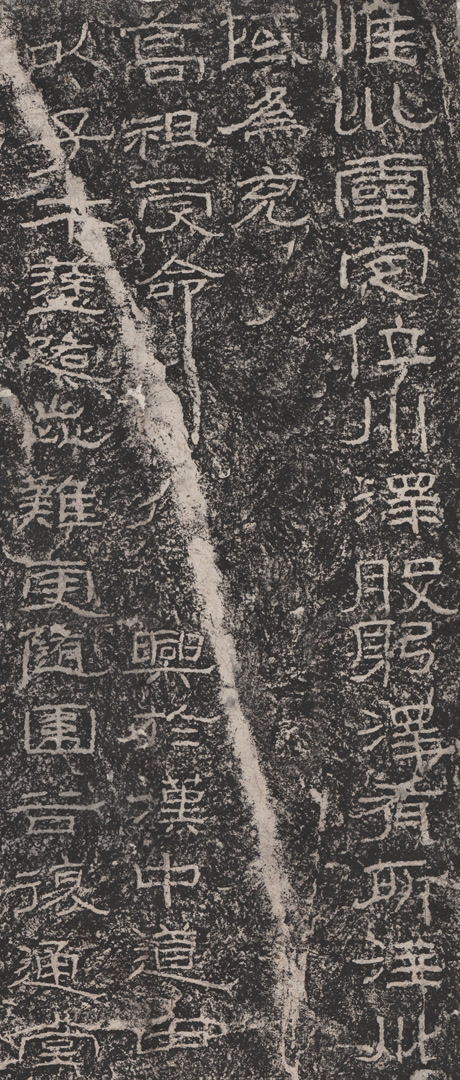 惟巛靈定位川澤股躬澤有所注川
域為充
高祖受命興於漢中道由
以子午途路歰難更隨圍谷復通堂